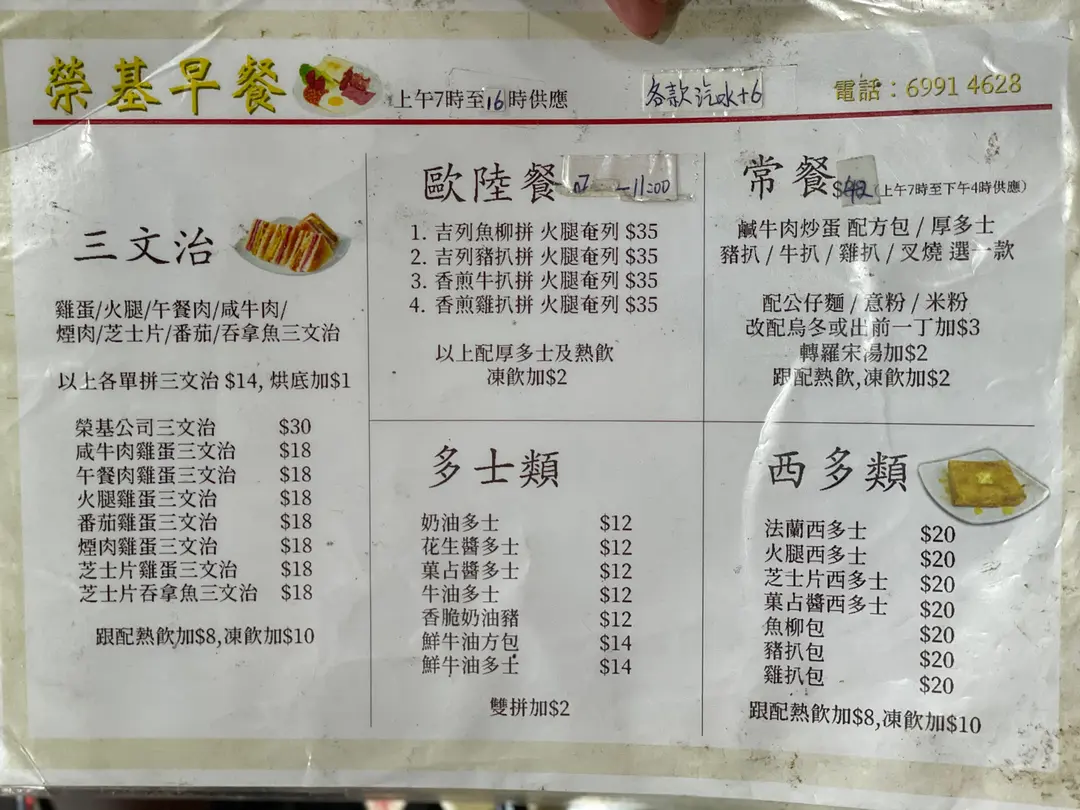 榮基早餐
上午7時至16時供應
各款汽水+6
電話：6991 4628
三文治
雞蛋/火腿/午餐肉/咸牛肉/
煙肉/芝士片/番茄/吞拿魚三文治
以上各單拼三文治 $14, 烘底加$1
榮基公司三文治 $30
咸牛肉雞蛋三文治 $18
午餐肉雞蛋三文治 $18
火腿雞蛋三文治 $18
番茄雞蛋三文治 $18
煙肉雞蛋三文治 $18
芝士片雞蛋三文治 $18
芝士片吞拿魚三文治 $18
跟配熱飲加$8,凍飲加$10
歐陸餐 07 -11:00
1. 吉列魚柳拼 火腿奄列 $35
2. 吉列豬扒拼 火腿奄列 $35
3. 香煎牛扒拼 火腿奄列 $35
4. 香煎雞扒拼 火腿奄列 $35
以上配厚多士及熱飲
凍飲加$2
常餐 $42 (上午7時至下午4時供應)
鹹牛肉炒蛋 配方包 / 厚多士
豬扒 / 牛扒 / 雞扒 / 叉燒 選一款
配公仔麵 / 意粉 / 米粉
改配烏冬或出前一丁加$3
轉羅宋湯加$2
跟配熱飲,凍飲加$2
多士類
奶油多士 $12
花生醬多士 $12
菓占醬多士 $12
牛油多士 $12
香脆奶油豬 $12
鮮牛油方包 $14
鮮牛油多士 $14
雙拼加$2
西多類
法蘭西多士 $20
火腿西多士 $20
芝士片西多士 $20
菓占醬西多士 $20
魚柳包 $20
豬扒包 $20
雞扒包 $20
跟配熱飲加$8,凍飲加$10